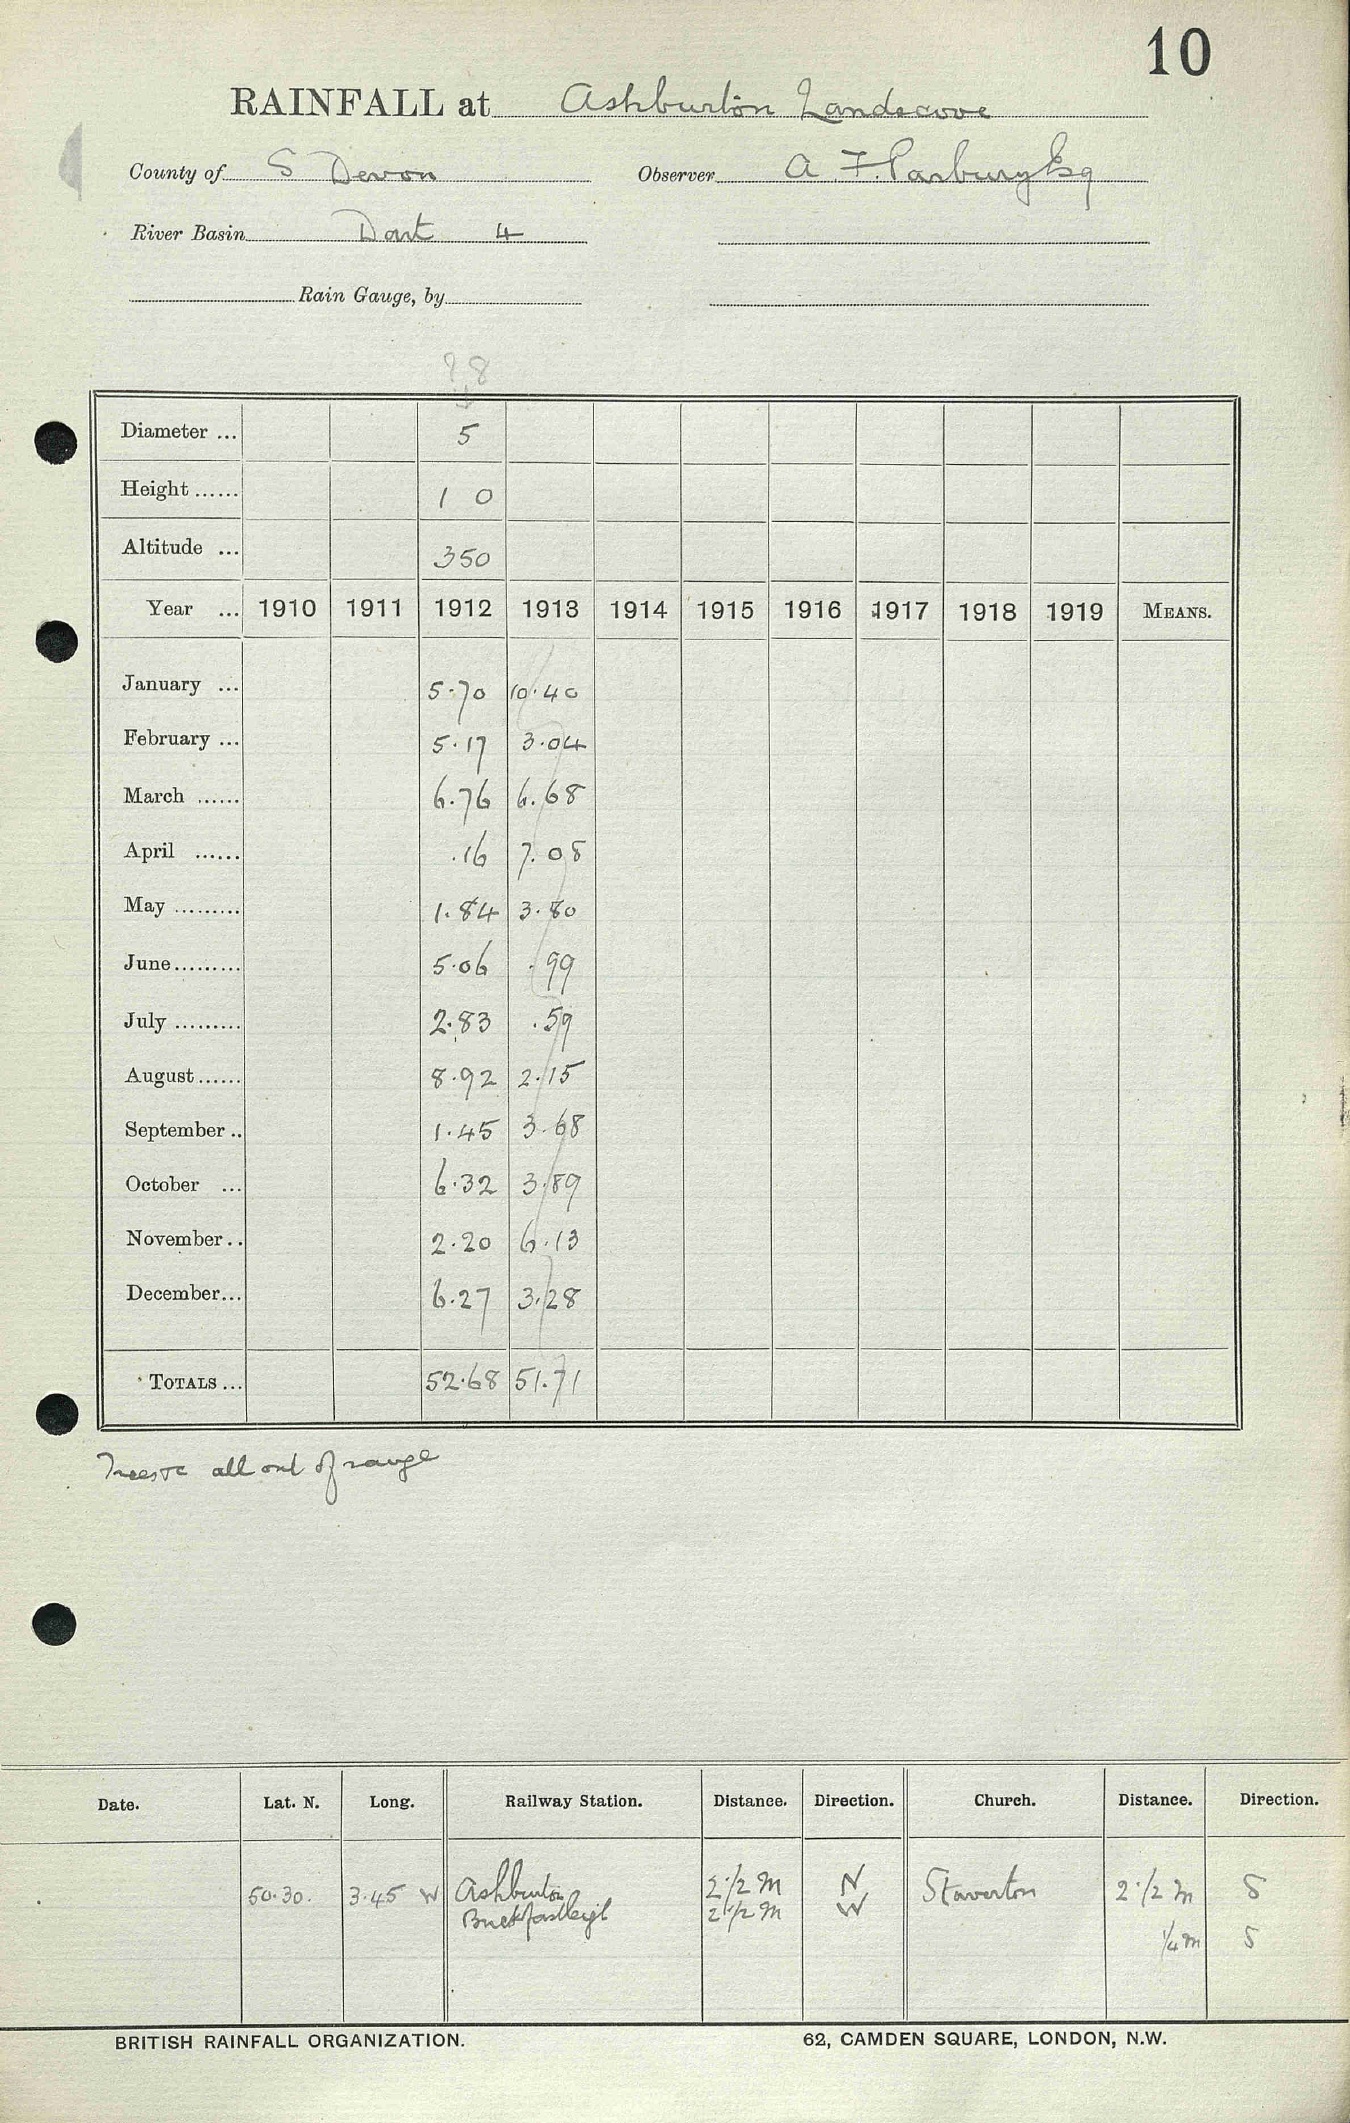 10
RAINFALL at Ashburton Landscove
County of S Devon Observer A F. Parbury Esq
River Basin Dart 4
Rain Gauge, by
? 8
Diameter ... 5
Height ...... 1 0
Altitude ... 350
Year ... 1910 1911 1912 1913 1914 1915 1916 1917 1918 1919 MEANS.
January ... 5.70 10.40
February ... 5.17 3.04
March ...... 6.76 6.68
April ...... .16 7.08
May ......... 1.84 3.80
June......... 5.06 .99
July ......... 2.83 .59
August...... 8.92 2.15
September .. 1.45 3.68
October ... 6.32 3.89
November .. 2.20 6.13
December... 6.27 3.28
TOTALS ... 52.68 51.71
Trees &c all out of range
Date. Lat. N. Long. Railway Station. Distance. Direction. Church. Distance. Direction.
50.30. 3.45 W Ashburton 2 1/2 m N Staverton 2 1/2 m S
Buckfastleigh 2 1/2 m W
1/4 m S
BRITISH RAINFALL ORGANIZATION. 62, CAMDEN SQUARE, LONDON, N.W.